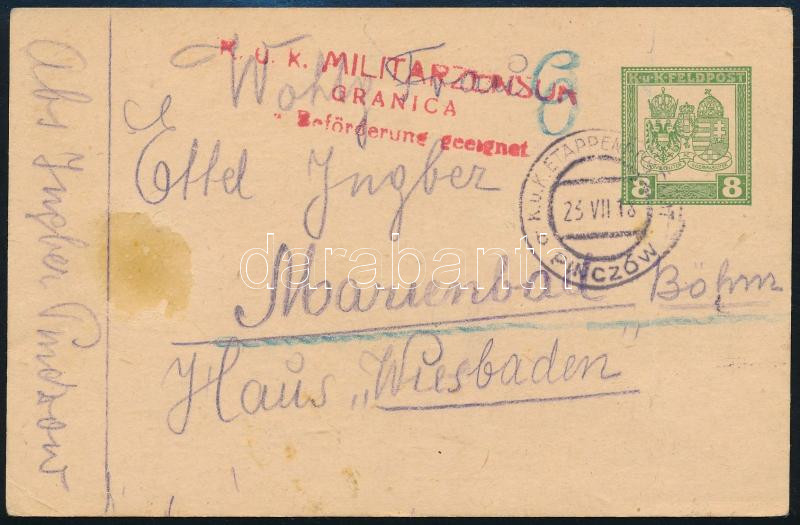 K. u. K. MILITÄRZENSUR
GRANICA
Beförderung geeignet
K.u.K.FELDPOST
8 8
K.u.K. ETAPPEN
23 VII 18
PIŃCZÓW
Wohlg Frau
Ettel Ingber
Marienbad Böhm
Haus „Wiesbaden"
Abs Ingber Pinczow
darabanth